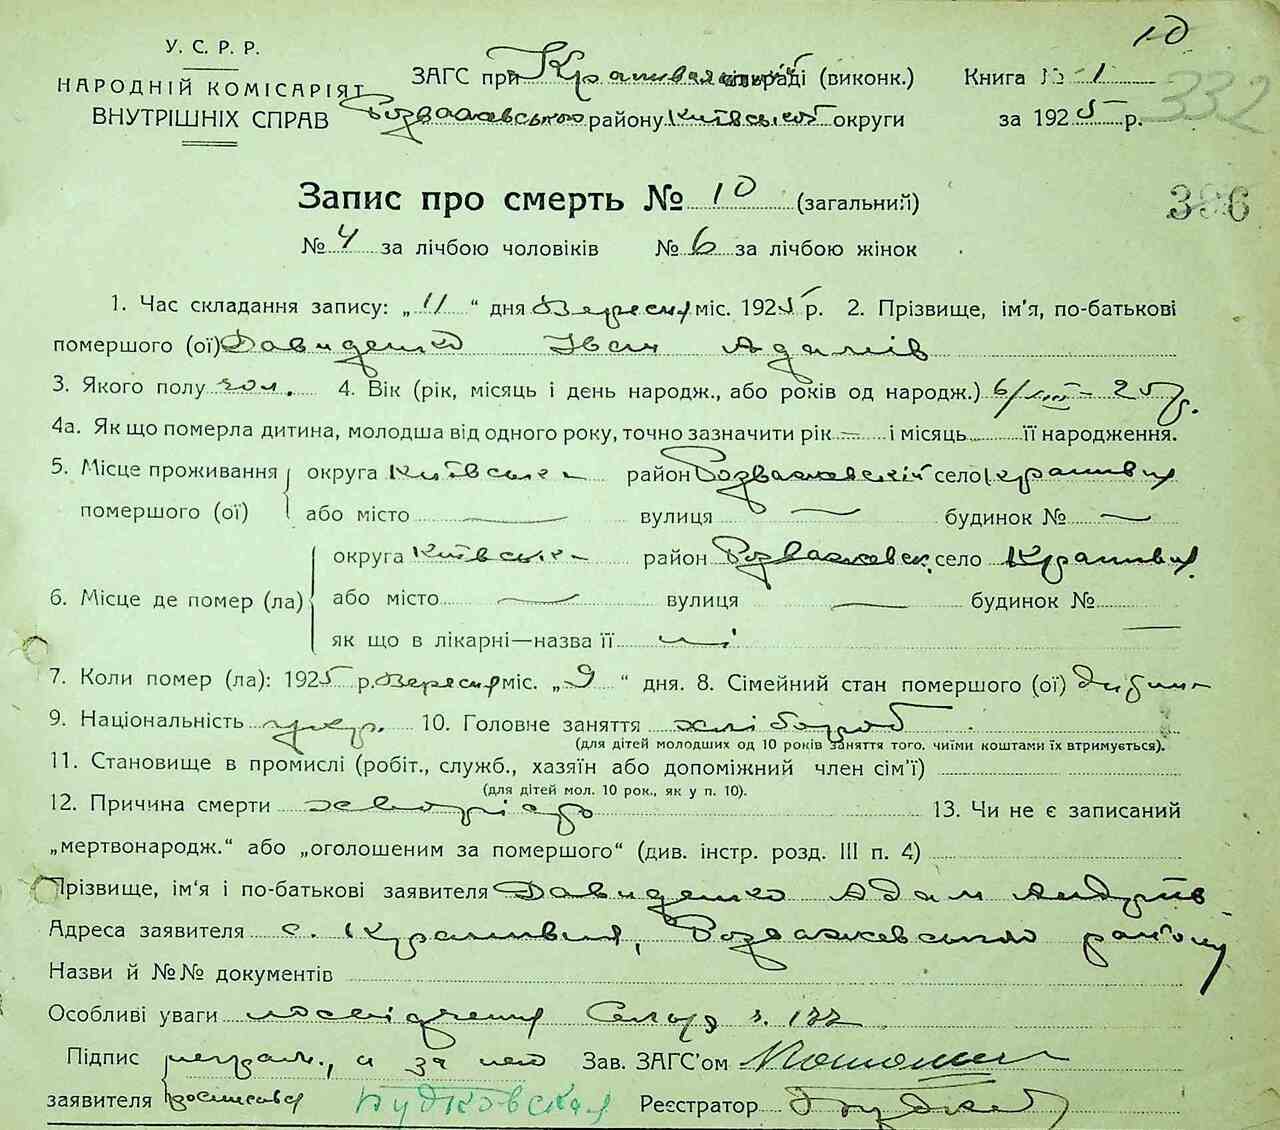 10
У. С. Р. Р.
НАРОДНІЙ КОМІСАРІЯТ
ВНУТРІШНІХ СПРАВ
ЗАГС при Крапивянській сільраді (виконк.)
Розважевського району Київської округи
Книга № 1
за 1925 р.
332
Запис про смерть № 10 (загальний)
№ 4 за лічбою чоловіків № 6 за лічбою жінок
1. Час складання запису: „11“ дня Вересня міс. 1925 р. 2. Прізвище, ім'я, по-батькові
помершого (ої) Давиденко Іван Адамів
3. Якого полу чол. 4. Вік (рік, місяць і день народж., або років од народж.)
4а. Як що померла дитина, молодша від одного року, точно зазначити рік — і місяць її народження.
5. Місце проживання помершого (ої) округа Київська район Розважевській село Крапивня
або місто — вулиця — будинок № —
6. Місце де помер (ла) округа Київська район Розважевськ. село Крапивня
або місто — вулиця — будинок № —
як що в лікарні—назва її ні
7. Коли помер (ла): 1925 р. Вересня міс. „9“ дня. 8. Сімейний стан помершого (ої) дитина
9. Національність укр. 10. Головне заняття хлібороб
(для дітей молодших од 10 років заняття того, чиїми коштами їх втримується).
11. Становище в промислі (робіт., служб., хазяїн або допоміжний член сім'ї)
(для дітей мол. 10 рок., як у п. 10).
12. Причина смерти 13. Чи не є записаний
„мертвонародж.“ або „оголошеним за помершого“ (див. інстр. розд. III п. 4)
Прізвище, ім'я і по-батькові заявителя Давиденко Адам Андріїв
Адреса заявителя с. Крапивня, Розважевського району
Назви й №№ документів
Особливі уваги посвідчення Сельради з. 122
Підпис заявителя неграм., а за него Зав. ЗАГС'ом
росписався Будковская Реєстратор